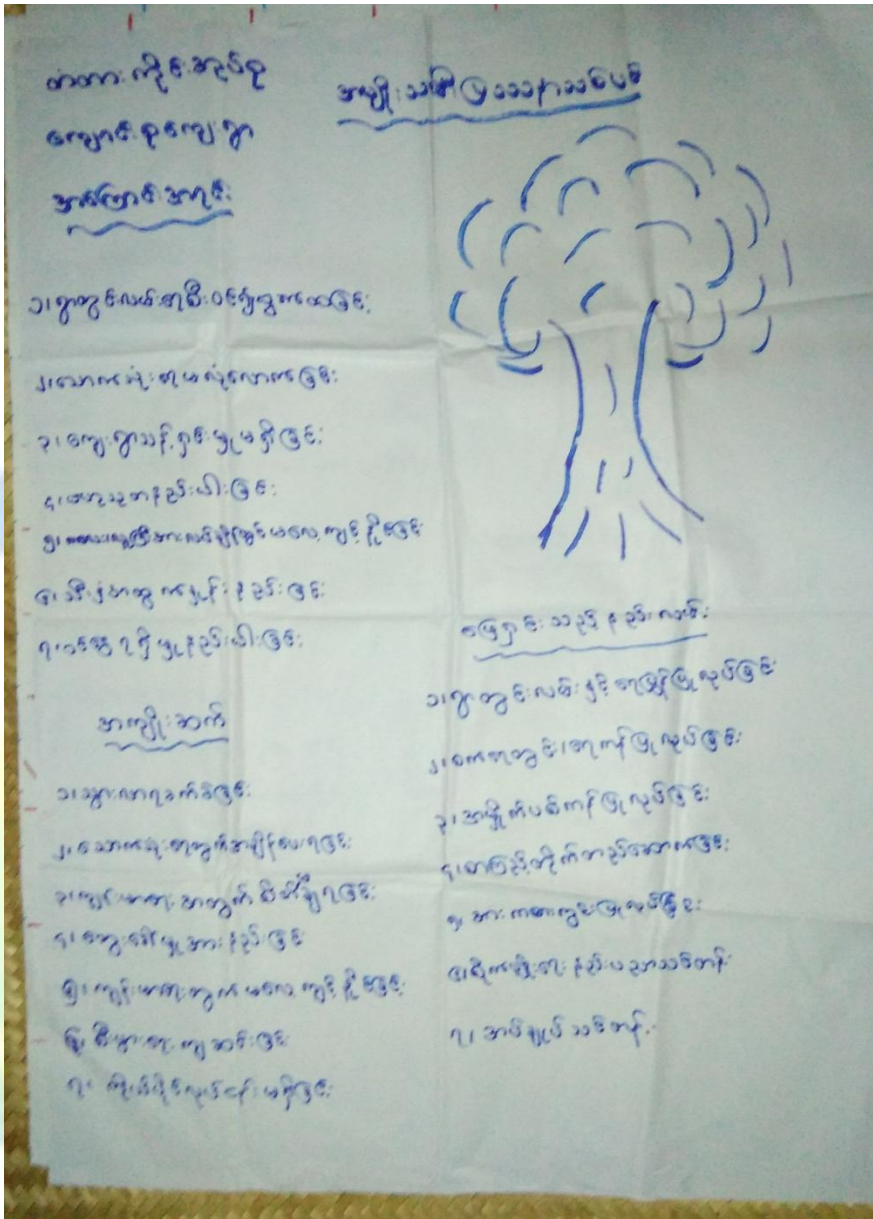 တံတားကိုင်းအုပ်စု
ကျောင်းစုကျေးရွာ
အမျိုးသမီးပြဿနာသစ်ပင်
အကြောင်းအရင်း
၁၊ ရွာတွင်းလမ်း ဝင် ထွက် ခြင်း
၂၊ သောက်သုံးရေမလုံလောက်ခြင်း
၃၊ ကျေးရွာသန့်ရှင်းမှုမရှိခြင်း
၄၊ ဗဟုသုတနည်းပါးခြင်း
၅၊ မလေ့ကျင့်နိုင်ခြင်း
၆၊ သီးနှံအထွက်နှုန်းနည်းခြင်း
၇၊ ဝင်ငွေရရှိမှုနည်းပါးခြင်း
အကျိုးဆက်
၁၊ သွားလာရခက်ခဲခြင်း
၂၊ သောက်သုံးရေတွက်အချိန်ပေးရခြင်း
၃၊ ကျန်းမာရေးအတွက်စိတ်ပူရခြင်း
၄၊ တွေးခေါ်မှုအားနည်းခြင်း
၅၊ ကျန်းမာရေးတွက်မလေ့ကျင့်နိုင်ခြင်း
၆၊ စီးပွားရေးကျဆင်းခြင်း
၇၊ ကိုယ်ပိုင်လုပ်ငန်းမရှိခြင်း
ဖြေရှင်းသည့်နည်းလမ်း
၁၊ ရွာတွင်းလမ်းနှင့်ရေမြောင်းပြုလုပ်ခြင်း
၂၊ ရေတွင်း၊ရေကန်ပြုလုပ်ခြင်း
၃၊ အမှိုက်ပစ်ကန်ပြုလုပ်ခြင်း
၄၊ စာကြည့်တိုက်တည်ဆောက်ခြင်း
၅၊ အားကစားကွင်းပြုလုပ်ခြင်း
၆၊ စိုက်ပျိုးရေးနည်းပညာသင်တန်း
၇၊ အပ်ချုပ်သင်တန်း